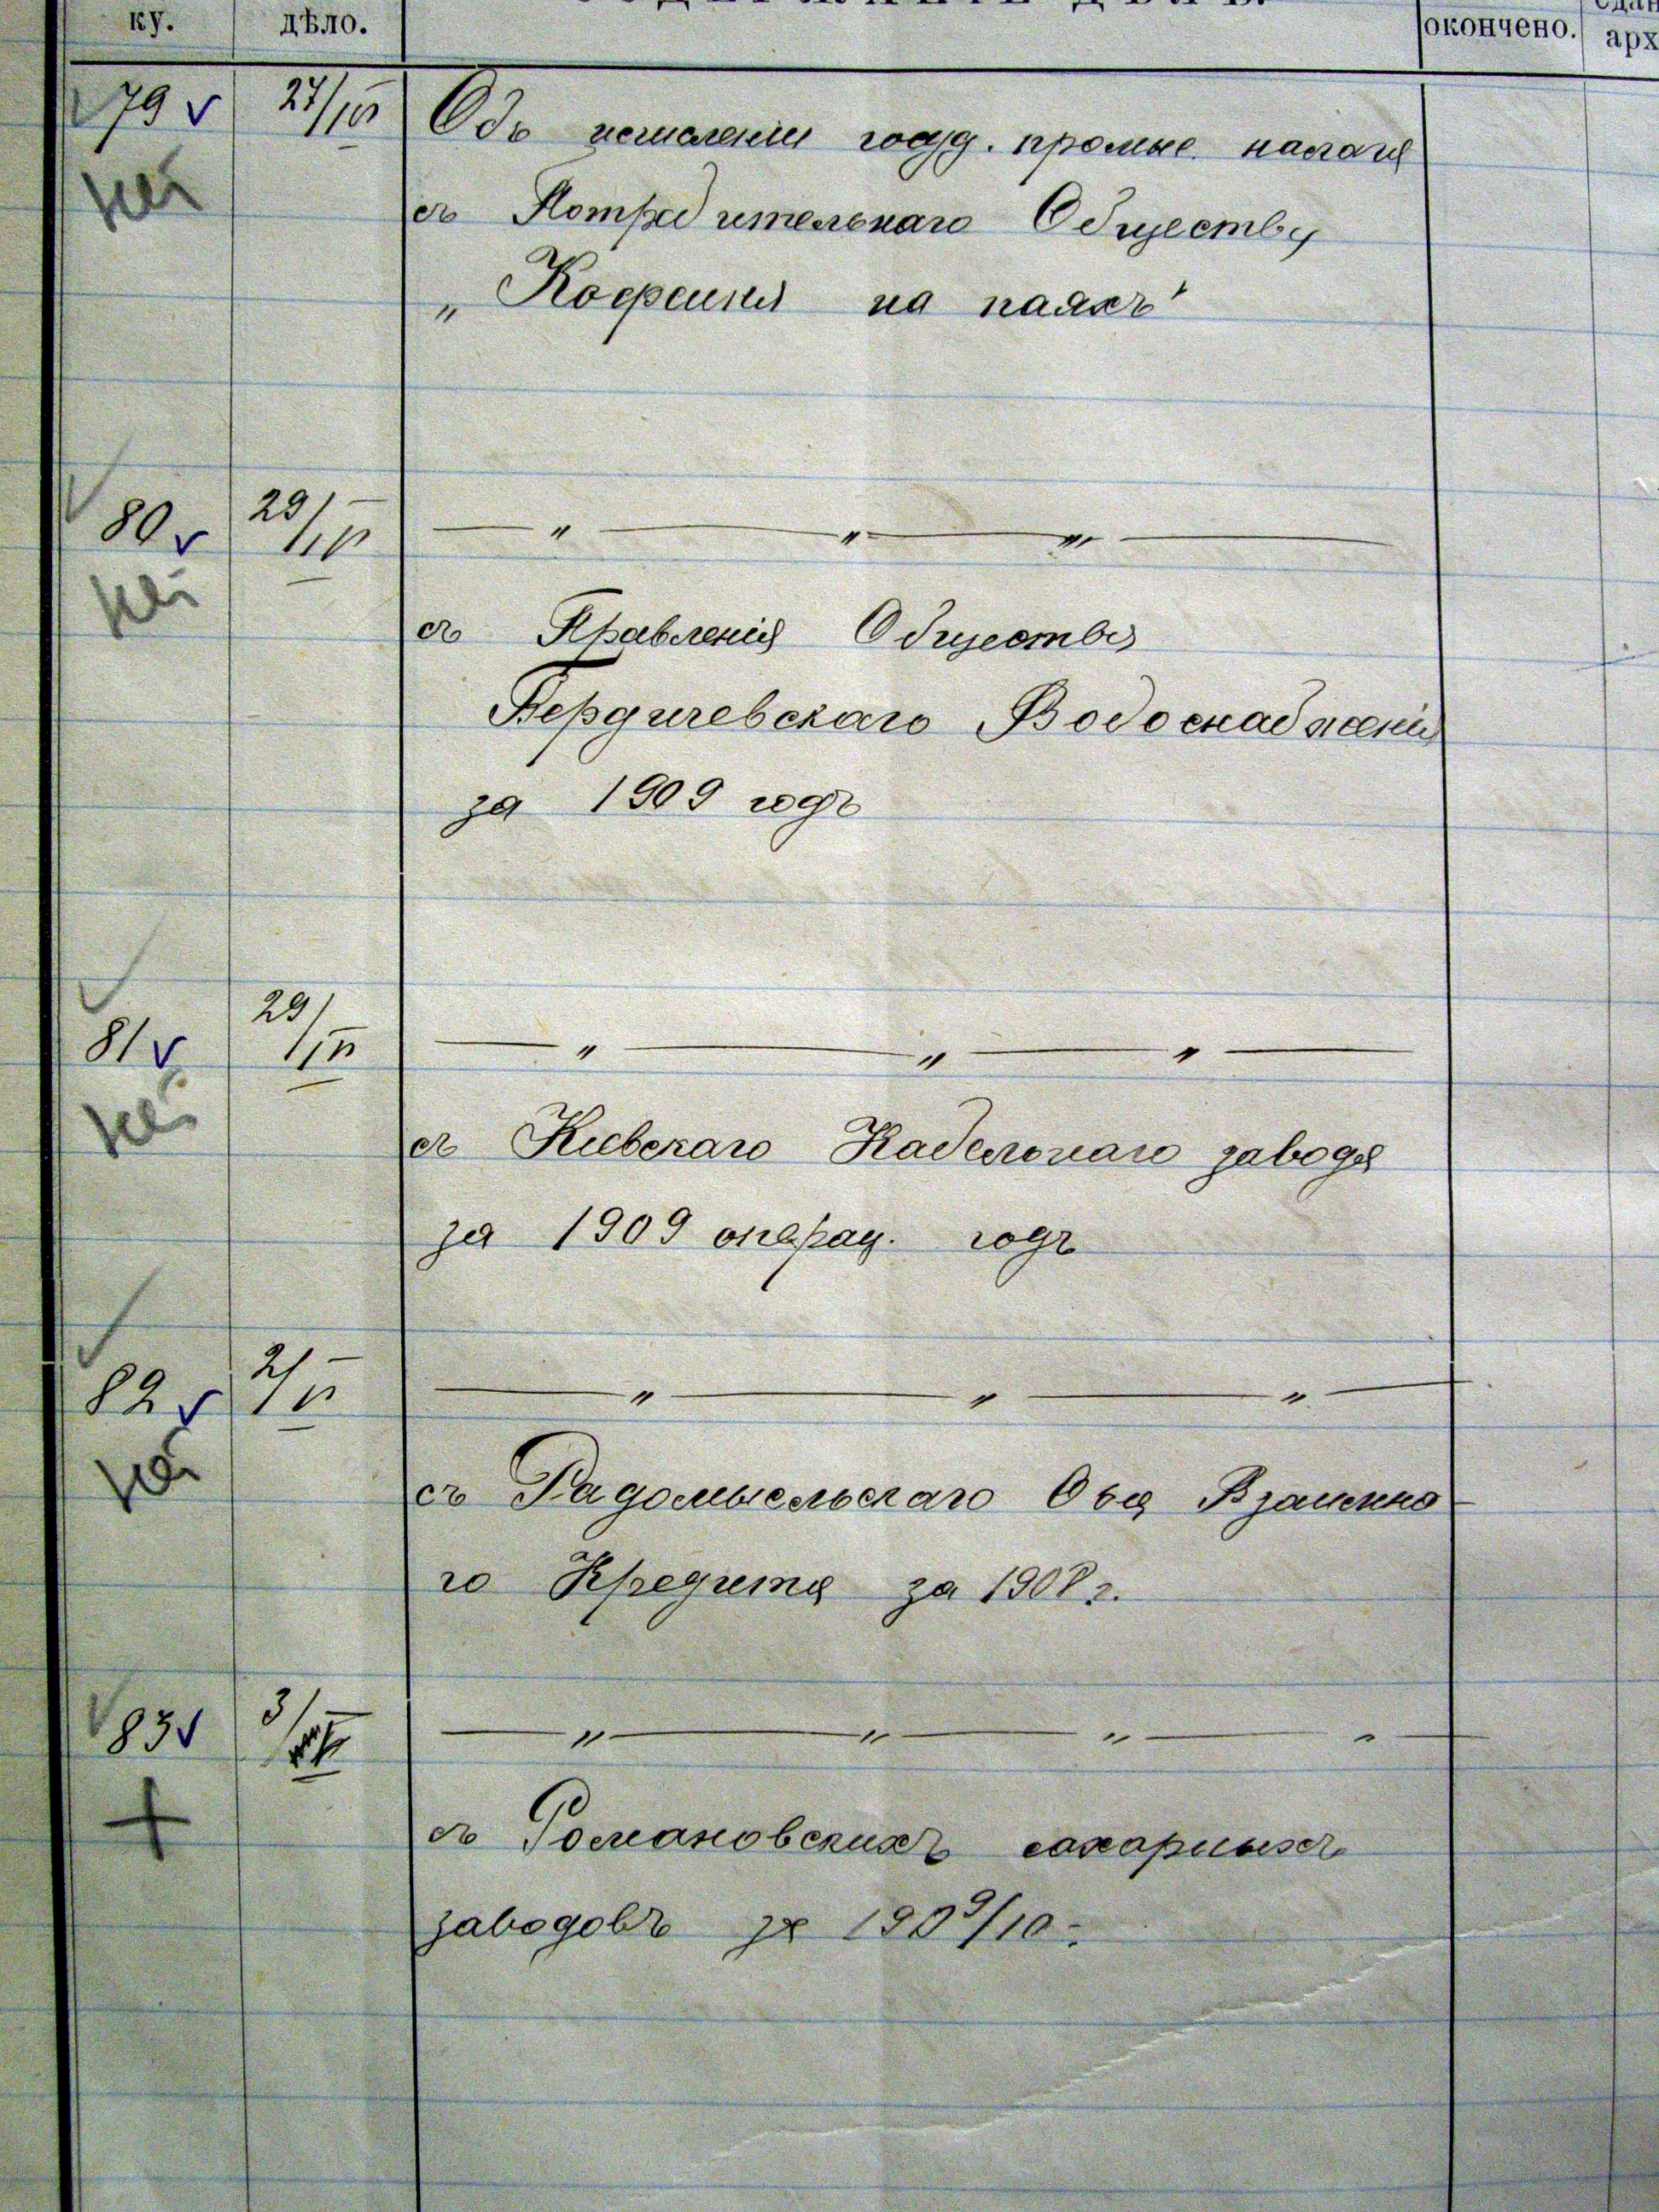 ку. дѣло. СОДЕРЖАНІЕ ДѢЛЪ. окончено.
79 v 27/IV Объ исчисленіи госуд. промыс. налога
нет
съ Потребительнаго Общества
„ Кофейня на паяхъ"
80 v 29/IV — " — " — " —
нет
съ Правленія Общества
Бердичевскаго Водоснабженія
за 1909 годъ
81 v 29/IV — " — " — " —
нет
съ Кіевскаго Кабельнаго завода
за 1909 операц. годъ
82 v 2/V — " — " — " —
нет
съ Радомысльскаго Общ Взаимна
го Кредита за 1908 г.
83 v 3/V — " — " — " — " —
+
съ Романовскихъ сахарныхъ
заводовъ за 1909/10.